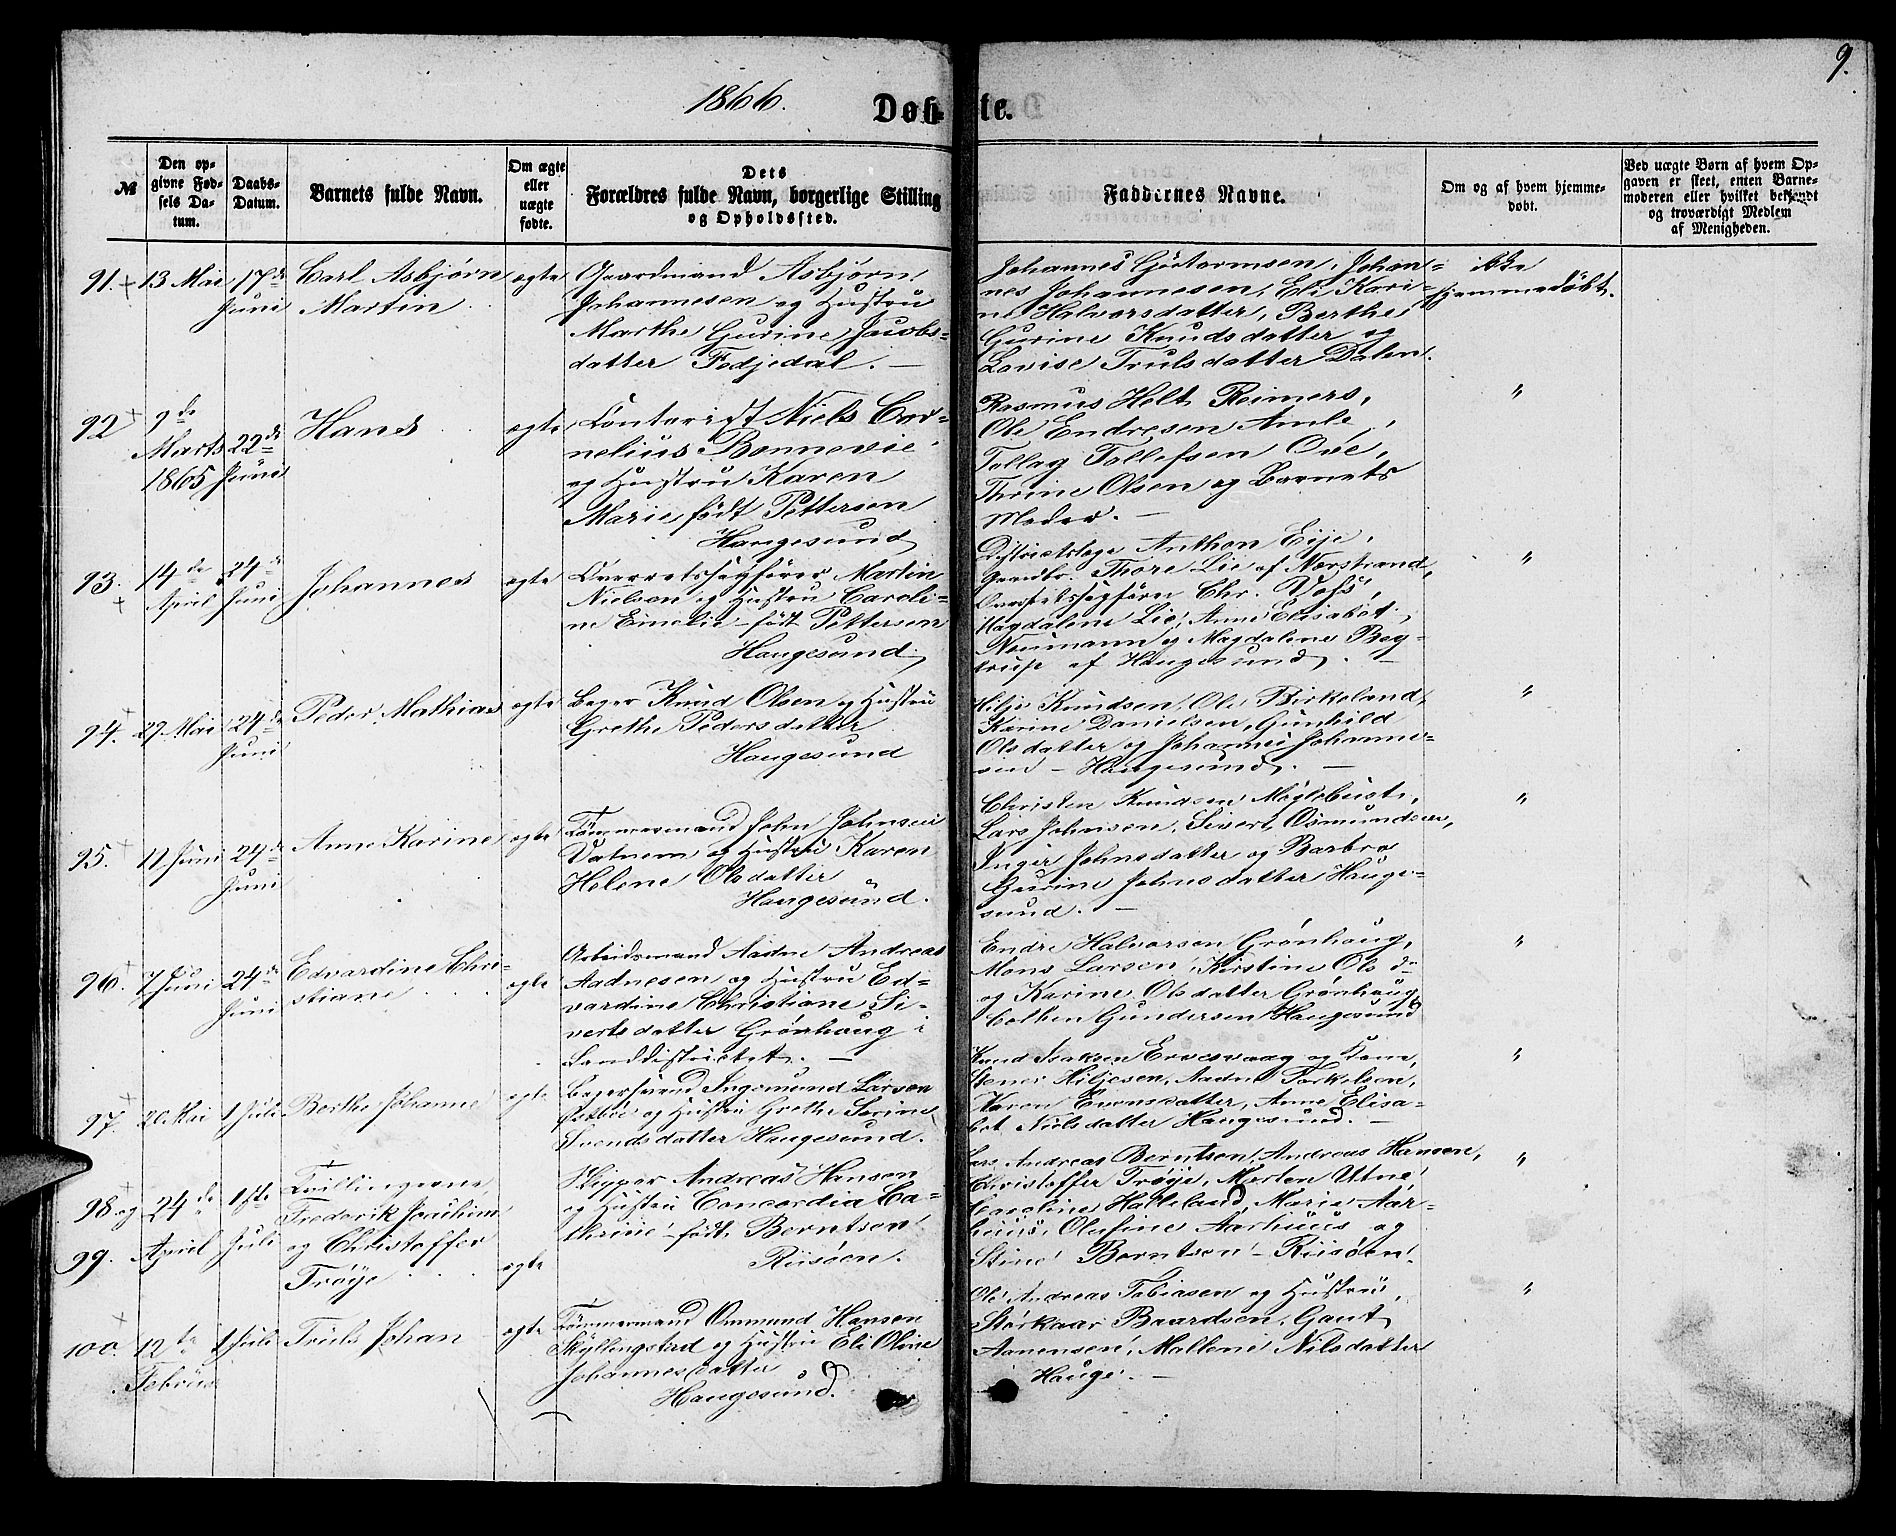 1866.
9.
Døbte.
№
Den op-
givne Fød-
sels Da-
tum.
Daabs-
Datum.
Barnets fulde Navn.
Om ægte
eller
uægte
fødte.
Dets
Forældres fulde Navn, borgerlige Stilling
og Opholdssted.
Faddernes Navne.
Om og af hvem hjemme-
døbt.
Ved uægte Børn af hvem Op-
gaven er skeet, enten Barne-
moderen eller hvilket bekjendt
og troværdigt Medlem
af Menigheden.
91.
13 Mai
17de
Juni
Carl Asbjørn
Martin
ægte
Gaardmand Asbjørn
Johannesen og Hustru
Marthe Gurine Jacobs-
datter Fedjedal.
Johannes Gutormsen, Johan-
nes Johannesen, Eli Kari-
ne Halvorsdatter, Berthe
Gurine Knudsdatter og
Lovise Trulsdatter Dalen.
ikke
hjemmedøbt.
92
9de
Marts
1865
22de
Juni
Hans
ægte
Contorist Niels Cor-
nelius Bonnevie
og Hustru Karen
Marie født Pettersen
Haugesund
Rasmus Holt Reimers,
Ole Endresen Amle,
Tollag Tollefsen Ove,
Thrine Olsen og Barnets
Moder.
"
93.
14de
April
24de
Juni
Johannes
ægte
Overretssagfører Martin
Nielsen og Hustru Caroli-
ne Emelie født Pettersen
Haugesund
Districtslæge Anthon Eije,
Gaardbr. Thore Lie af Nerstrand,
Overretssagfører Chr. Voss,
Magdalene Lie, Anne Elisabet
Neumann og Magdalene Beg-
trup af Haugesund.
"
94.
29 Mai
24de
Juni
Peder Mathias
ægte
Bager Knud Olsen og Hustru
Grethe Pedersdatter
Haugesund
Hilje Knudsen, Ole Birkeland,
Karine Danielsen, Gunhild
Olsdatter og Johannes Johanne-
sen - Haugesund.
"
95.
11 Juni
24de
Juni
Anne Karine
ægte
Tømmermand John Johnsen
Vatnem og Hustru Karen
Helene Olsdatter
Haugesund.
Christen Knudsen
Lars Johnsen, Sivert Osmundsen,
Inger Johnsdatter og Barbro
Gurine Johnsdatter Hauge-
sund.
"
96.
7 Juni
24de
Juni
Edvardine Chri-
stiane
ægte
Arbeidsmand Aadne Andreas
Aadnesen og Hustru Ed-
vardine Christiane Si-
vertsdatter Grønhaug i
Landdistrictet.
Endre Halvorsen Grønhaug,
Mons Larsen, Kirstine Olsd.
og Karine Olsdatter Grønhaug,
Gundersen Haugesund
"
97.
20 Mai
1 Juli
Berthe Johanne
ægte
Ingemund Larsen
og Hustru Grethe Serine
Svendsdatter Haugesund.
Knud Isaksen Ervesvaag og Kone,
Stener Hiljesen, Aadne Torkelsen,
Karen Evensdatter, Anne Elisa-
bet Nilsdatter Haugesund.
"
98 og
99.
24de
April
1ste
Juli
Tvillingerne
Frederik Joachim
og Christoffer
Trøye
ægte
Skipper Andreas Hansen
og Hustru Concordia Ca-
thrine født Berntsen
Risøen.
Lars Andreas Berntsen, Andreas Hansen,
Christoffer Trøye, Morten Utne,
Caroline Halleland, Marie Aar-
huus, Olufine Aarhuus og
Stine Berntsen - Risøen.
"
100.
12te
Februar
1 Juli
Truls Johan
ægte
Tømmermand Ommund Hansen
Skyllengstad og Hustru Eli Oline
Johannesdatter
Haugesund.
Ole Andreas Tobiasen og Hustru,
Størkaar Baardsen, Gaut
Aanensen, Mallene Nilsdatter
Hauge.
"